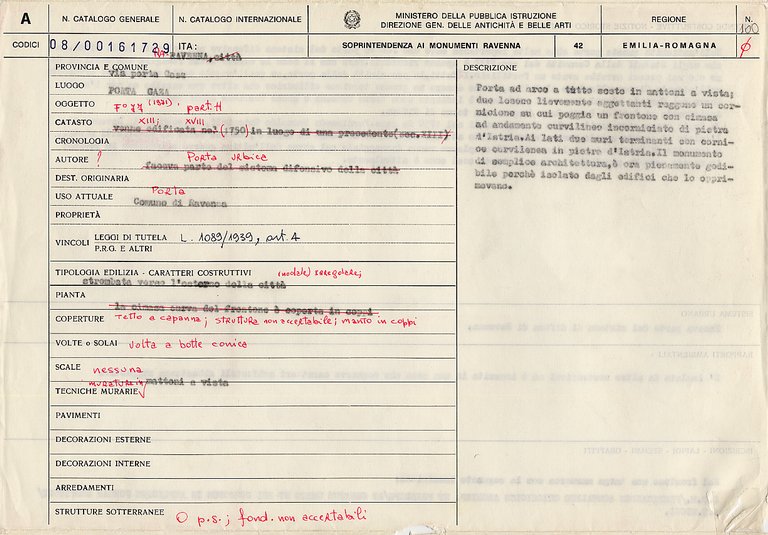 A
N. CATALOGO GENERALE
N. CATALOGO INTERNAZIONALE
MINISTERO DELLA PUBBLICA ISTRUZIONE
DIREZIONE GEN. DELLE ANTICHITÀ E BELLE ARTI
REGIONE
N.
100
CODICI
08/00161729
ITA:
SOPRINTENDENZA AI MONUMENTI RAVENNA
42
EMILIA-ROMAGNA
PROVINCIA E COMUNE
RA-RAVENNA, città
via porta Gaza
LUOGO
PORTA GAZA
OGGETTO
F° 77 (1971) . part. H
CATASTO
XIII; XVIII
venne edificata nel (1750) in luogo di una precedente(sec.XIII)
CRONOLOGIA
AUTORE ?
Porta urbica
faceva parte del sistema difensivo della città
DEST. ORIGINARIA
Porta
USO ATTUALE
Comune di Ravenna
PROPRIETÀ
VINCOLI
LEGGI DI TUTELA L. 1089/1939, art. 4
P.R.G. E ALTRI
TIPOLOGIA EDILIZIA - CARATTERI COSTRUTTIVI
irregolare;
strombata verso l'esterno della città
PIANTA
la cimasa curva del frontone è coperta in coppi
COPERTURE tetto a capanna; struttura non accertabile; manto in coppi
VOLTE o SOLAI volta a botte conica
SCALE nessuna
muratura in mattoni a vista
TECNICHE MURARIE
PAVIMENTI
DECORAZIONI ESTERNE
DECORAZIONI INTERNE
ARREDAMENTI
STRUTTURE SOTTERRANEE O p.s.; fond. non accertabili
DESCRIZIONE
Porta ad arco a tutto sesto in mattoni a vista;
due lesene lievemente aggettanti reggono un cor-
nicione su cui poggia un frontone con cimasa
ad andamento curvilineo incorniciato di pietra
d'Istria.Ai lati due muri terminanti con corni-
ce curvilenea in pietra d'Istria.Il monumento
di semplice architettura,è ora pienamente godi-
bile perchè isolato dagli edifici che lo oppri-
mevano.